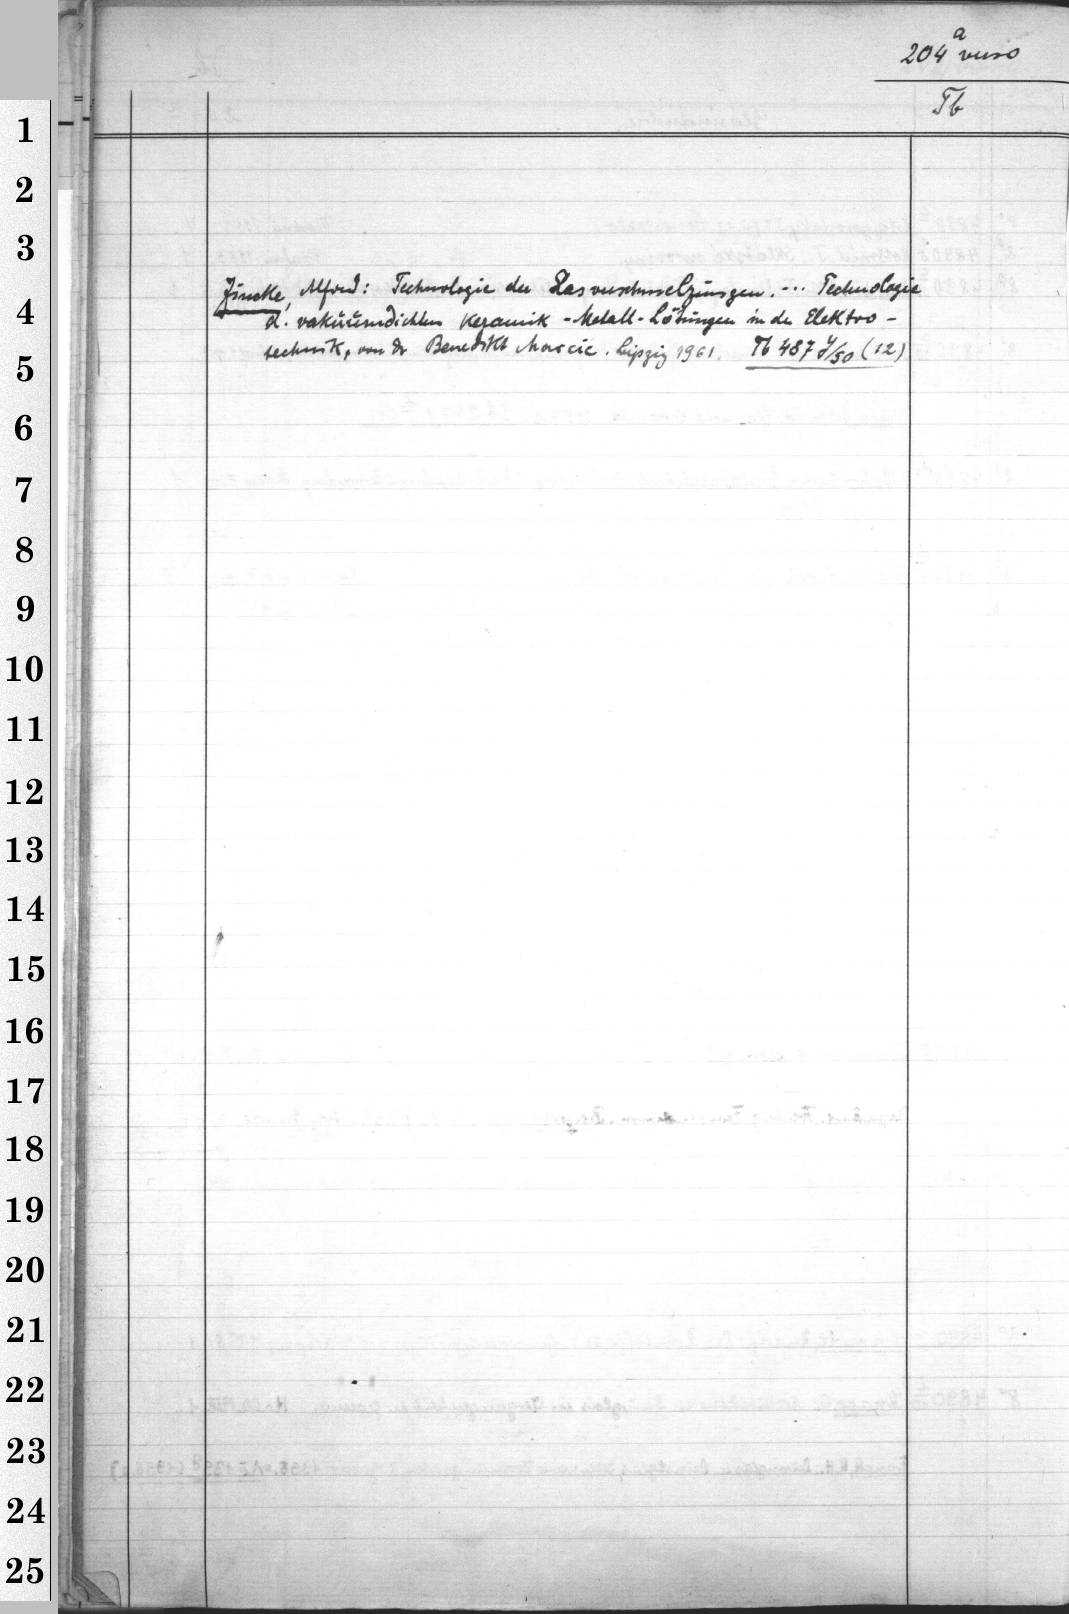 204 a verso
Tb
1
2
3
Zincke, Alfred: Technologie der Glasverschmelzungen. ... Technologie
4
d. vakuumdichten Keramik-Metall-Lötungen in der Elektro-
technik, von Dr Benedikt Marcic. Leipzig 1961. Tb 487 y/50 (12)
5
6
7
8
9
10
11
12
13
14
15
16
17
18
19
20
21
22
23
24
25